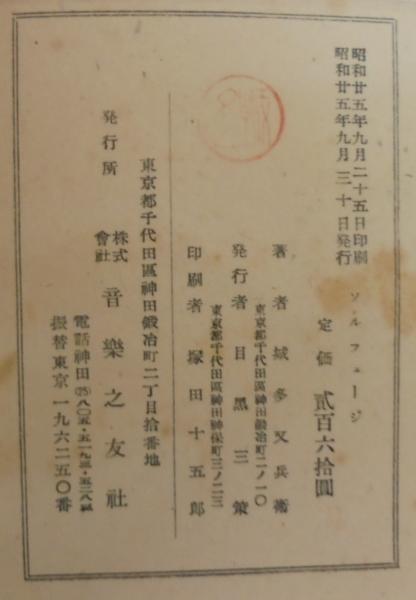 昭和廿五年九月二十五日印刷
昭和廿五年九月三十日発行
ソルフェージ
定価 貳百六拾圓
著者 城多又兵衛
東京都千代田區神田鍛冶町二ノ一〇
発行者 目黒三策
東京都千代田區神田神保町三ノ二三
印刷者 塚田十五郎
東京都千代田區神田鍛冶町二丁目拾番地
発行所 株式會社 音樂之友社
電話神田(25)八〇五・五一九三・五二八
振替東京一九六二五〇番